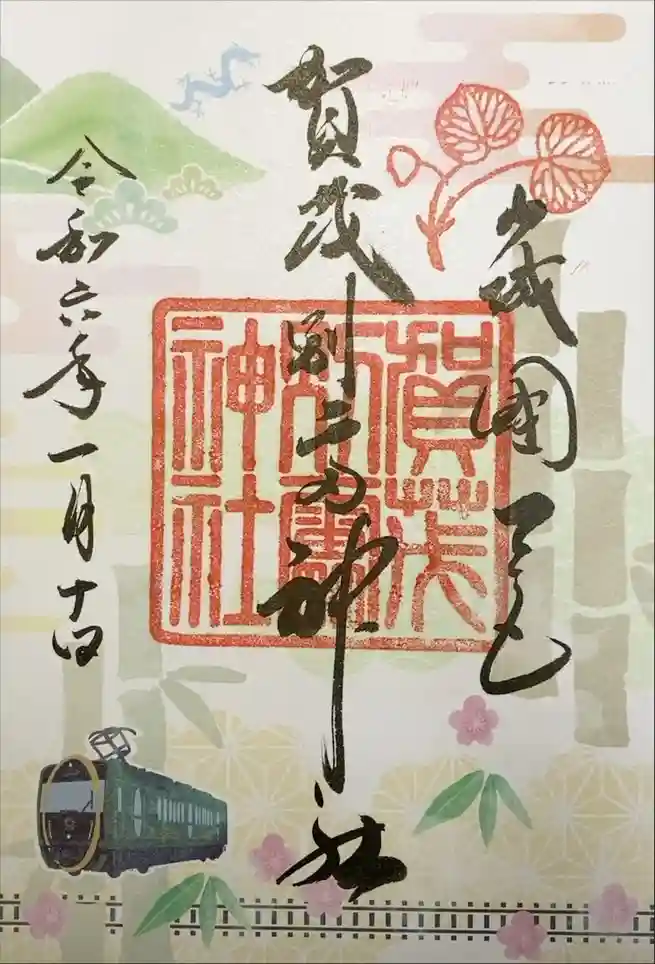 山城國一宮
賀茂別雷神社
令和六年一月十
賀茂
別雷
神社